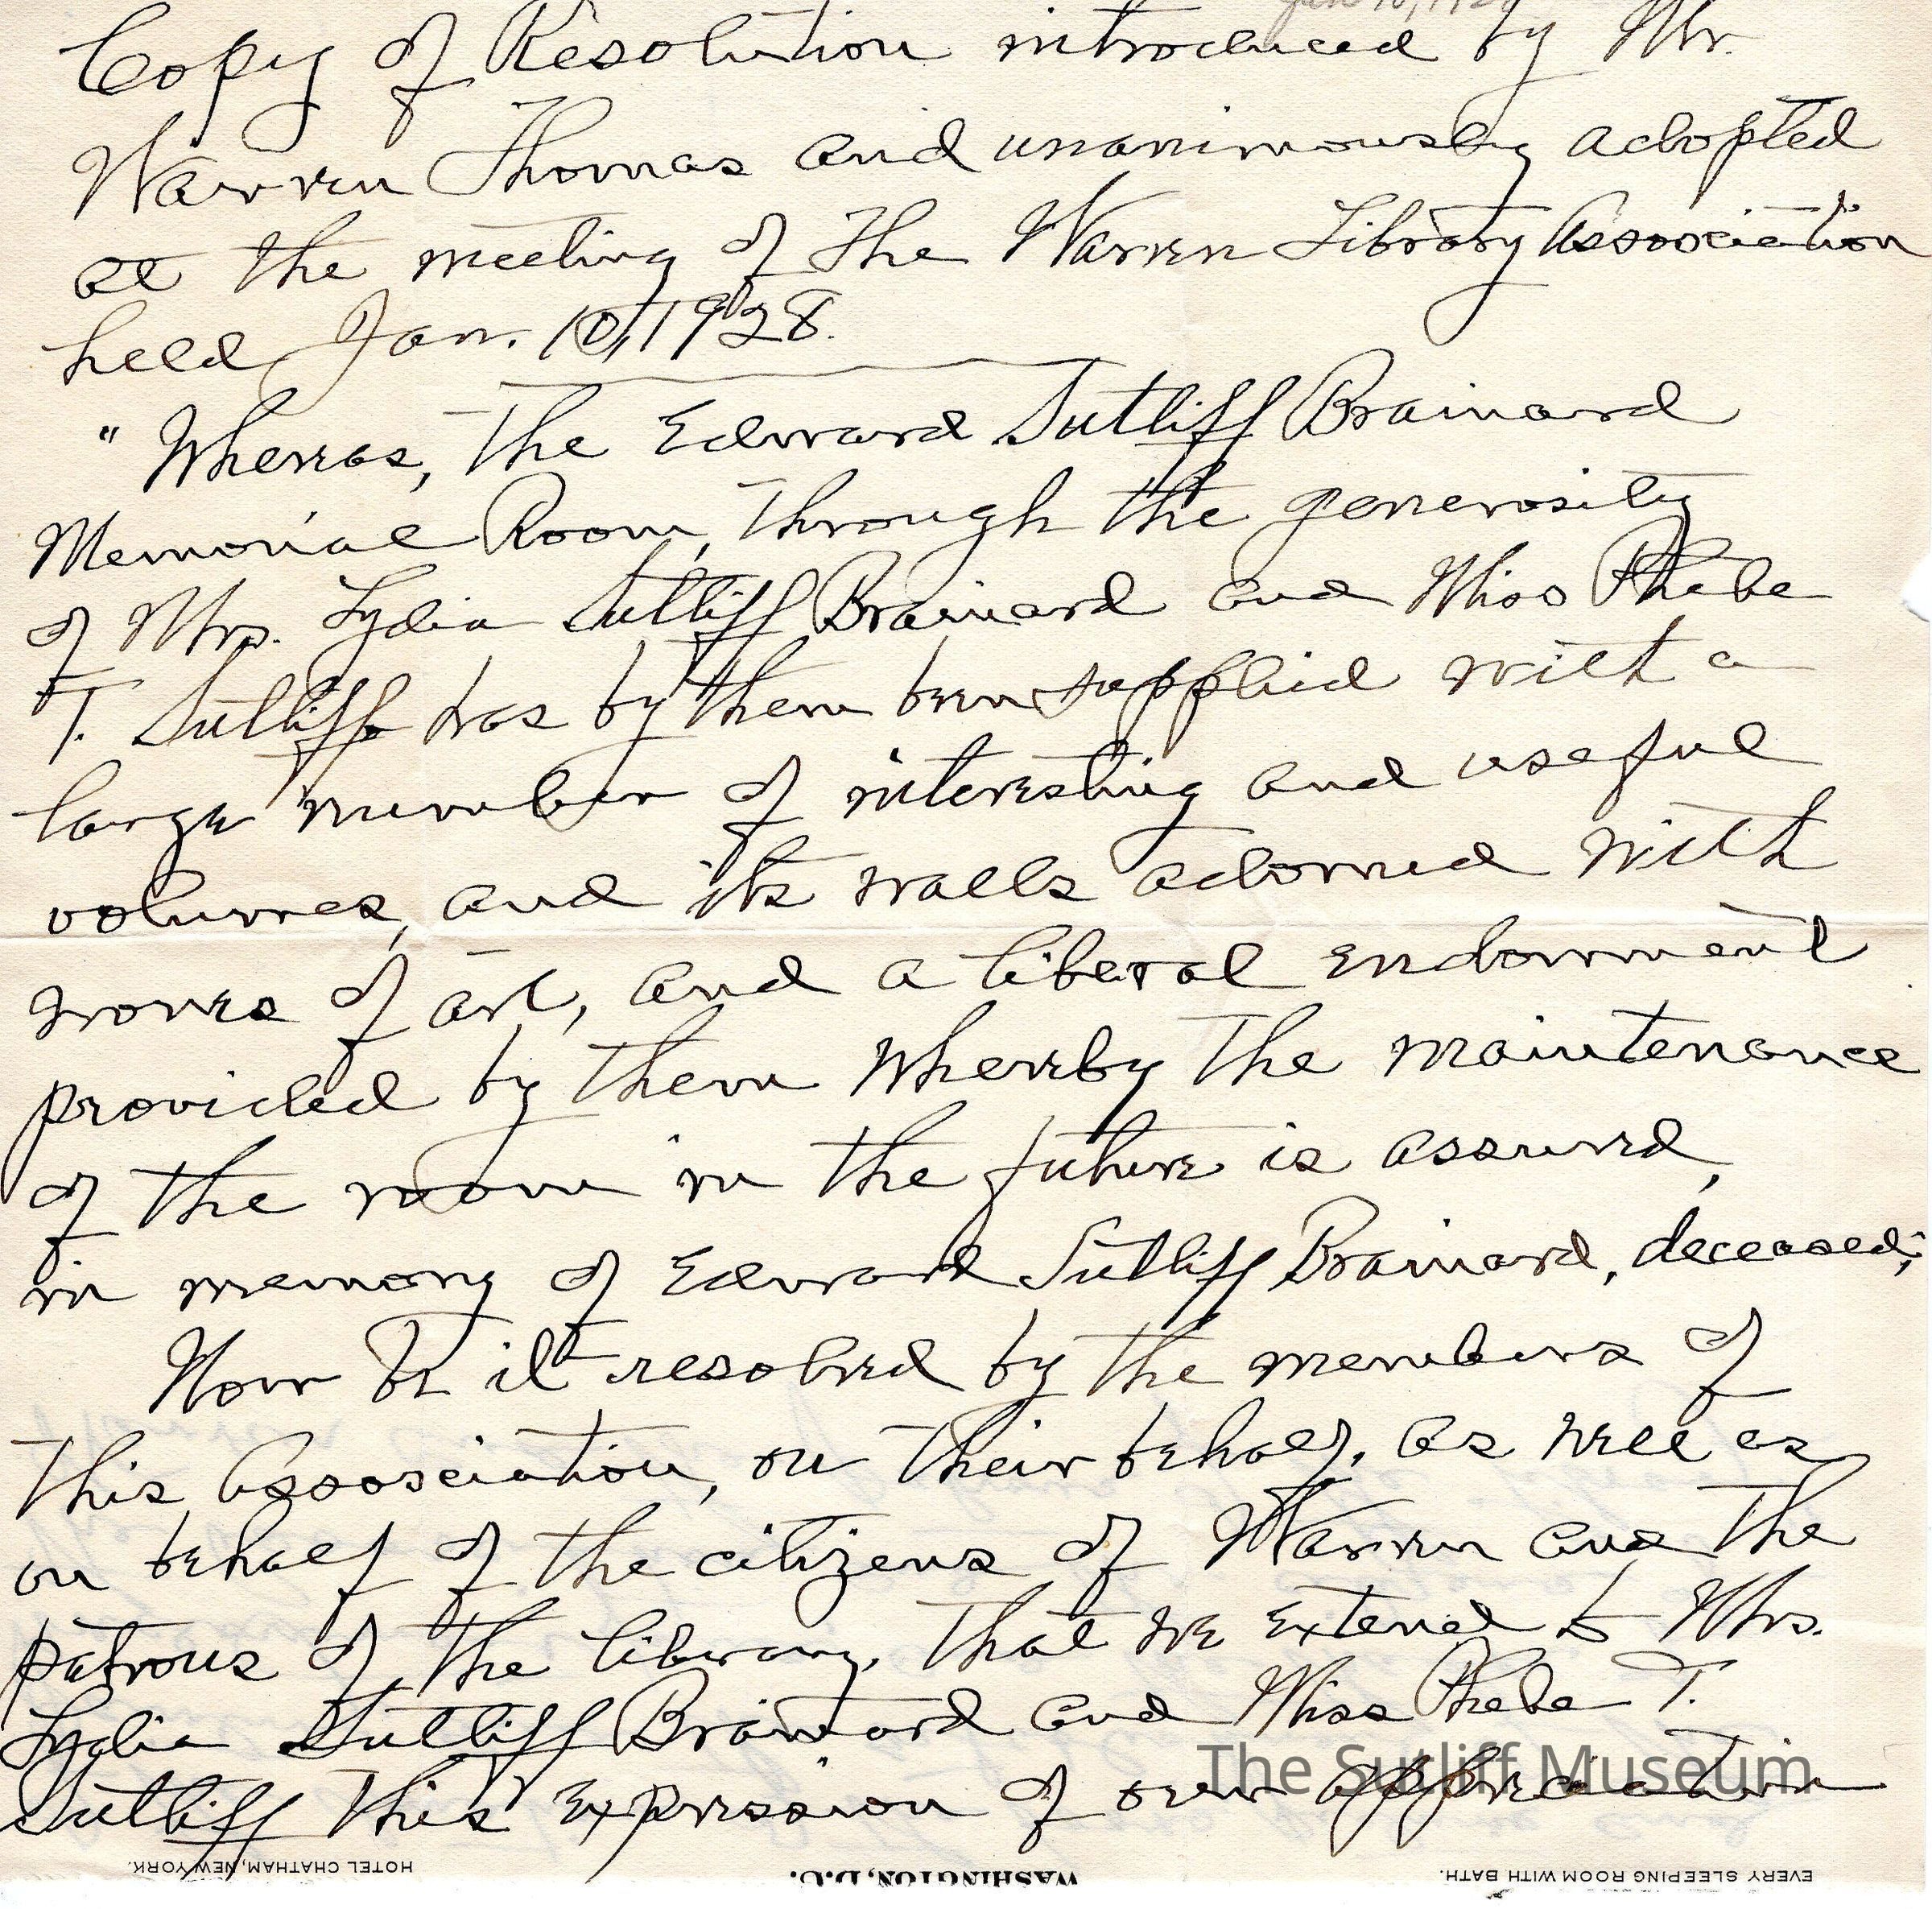 Jan 10, 1928
Copy of Resolution introduced by Mr.
Warren Thomas and unanimously adopted
at the meeting of The Warren Library Association
held Jan. 10, 1928.
"Whereas, the Edward Sutliff Brainard
Memorial Room, through the generosity
of Mrs. Lydia Sutliff Brainard and Miss Phebe
T. Sutliff has by them been supplied with a
large number of interesting and useful
volumes, and its walls adorned with
works of art, and a liberal endowment
provided by them whereby the maintenance
of the room in the future is assured,
in memory of Edward Sutliff Brainard, deceased;
Now be it resolved by the members of
this Association, on their behalf, as well as
on behalf of the citizens of Warren and the
patrons of the library, that we extend to Mrs.
Lydia Sutliff Brainard and Miss Phebe T.
Sutliff this expression of our appreciation
The Sutliff Museum
HOTEL CHATHAM, NEW YORK.
WASHINGTON, D.C.
EVERY SLEEPING ROOM WITH BATH.